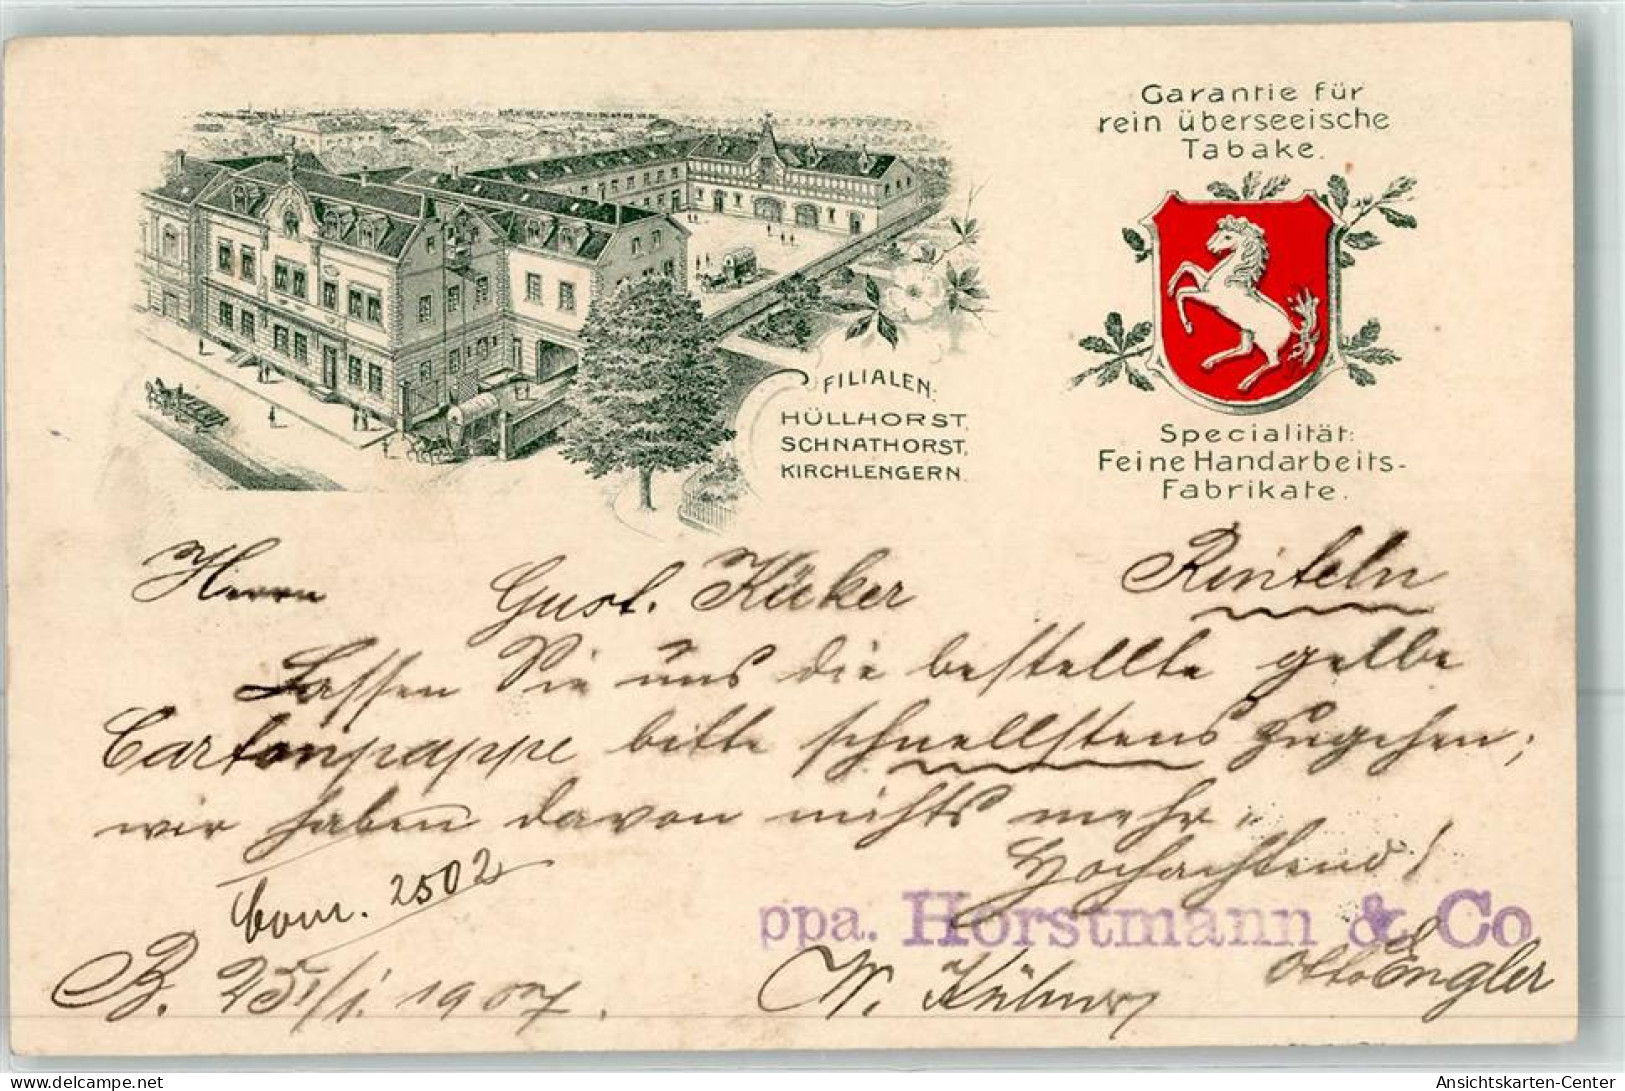 Garantie für
rein überseeische
Tabake.
FILIALEN:
HÜLLHORST,
SCHNATHORST,
KIRCHLENGERN.
Specialität:
Feine Handarbeits-
Fabrikate.
Herrn Gust. Küker Rinteln
Lassen Sie uns die bestellte gelbe
Cartonpappe bitte schnellstens zugehen;
wir haben davon nichts mehr.
Hochachtend!
Com. 2502
ppa. Horstmann & Co
B. 25/1. 1907.
W. Otto Engler
Ansichtskarten-Center